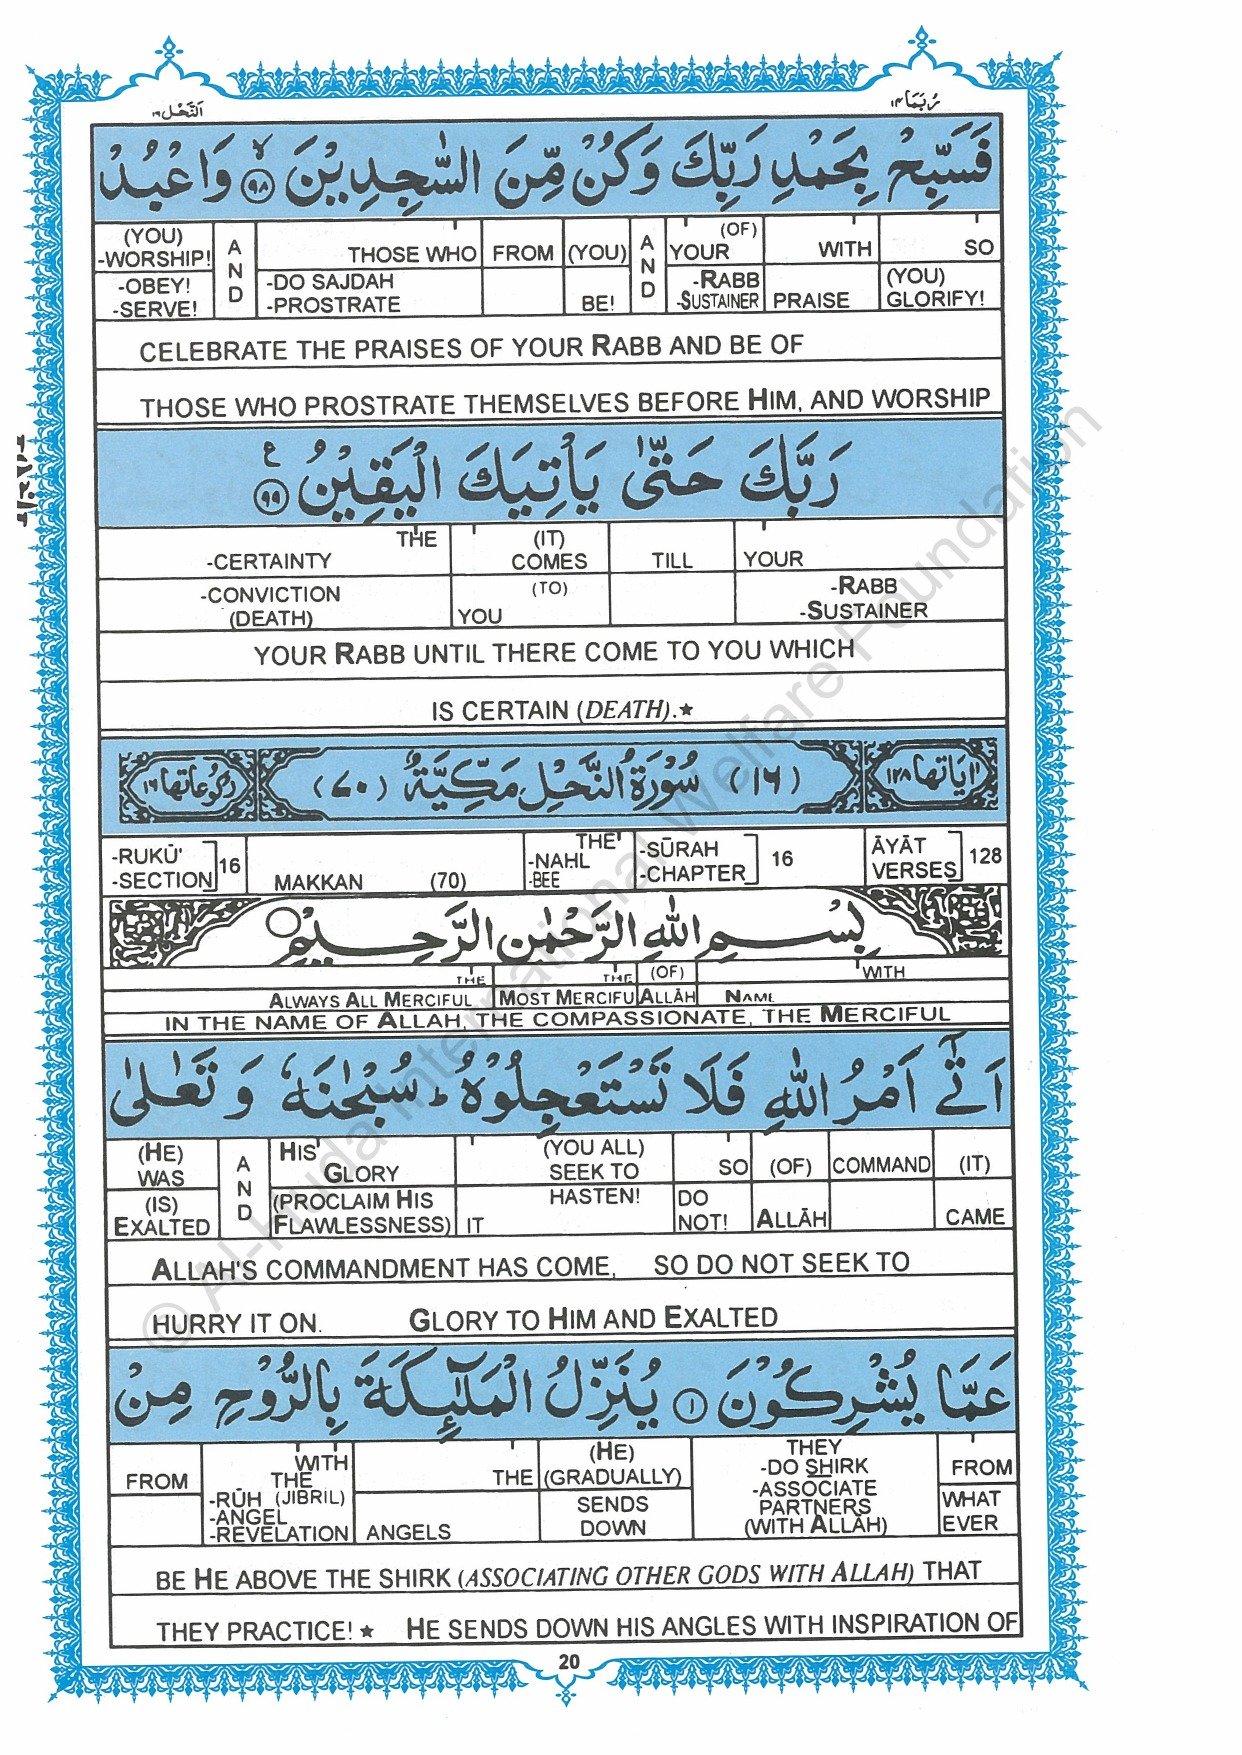 اَلنَّحْل ١٦
رُبَمَا ١٤
فَسَبِّحْ بِحَمْدِ رَبِّكَ وَكُنْ مِّنَ السّٰجِدِيْنَ ۙ ٩٨ وَاعْبُدْ
(YOU) -WORSHIP! -OBEY! -SERVE! | AND | THOSE WHO -DO SAJDAH -PROSTRATE | FROM | (YOU) BE! | AND | (OF) YOUR -RABB -SUSTAINER | WITH PRAISE | SO (YOU) GLORIFY!
CELEBRATE THE PRAISES OF YOUR RABB AND BE OF
THOSE WHO PROSTRATE THEMSELVES BEFORE HIM, AND WORSHIP
رَبَّكَ حَتّٰى يَاْتِيَكَ الْيَقِيْنُ ع ٩٩
THE -CERTAINTY -CONVICTION (DEATH) | (IT) COMES (TO) YOU | TILL | YOUR -RABB -SUSTAINER
YOUR RABB UNTIL THERE COME TO YOU WHICH
IS CERTAIN (DEATH).★
اٰيَاتُهَا ١٢٨ (١٦) سُوْرَةُ النَّحْلِ مَكِّيَّةٌ (٧٠) رُكُوْعَاتُهَا ١٦
-RUKŪ' -SECTION] 16 | MAKKAN (70) | THE -NAHL -BEE | -SŪRAH -CHAPTER] 16 | ĀYĀT VERSES] 128
بِسْمِ اللّٰهِ الرَّحْمٰنِ الرَّحِيْمِ
THE ALWAYS ALL MERCIFUL | THE MOST MERCIFU | (OF) ALLĀH | WITH NAME
IN THE NAME OF ALLAH, THE COMPASSIONATE, THE MERCIFUL
اَتٰٓى اَمْرُ اللّٰهِ فَلَا تَسْتَعْجِلُوْهُ ؕ سُبْحٰنَهٗ وَتَعٰلٰى
(HE) WAS (IS) EXALTED | AND | HIS GLORY (PROCLAIM HIS FLAWLESSNESS) | (YOU ALL) SEEK TO HASTEN! IT | SO DO NOT! | (OF) ALLĀH | COMMAND | (IT) CAME
ALLAH'S COMMANDMENT HAS COME, SO DO NOT SEEK TO
HURRY IT ON. GLORY TO HIM AND EXALTED
عَمَّا يُشْرِكُوْنَ ١ يُنَزِّلُ الْمَلٰٓئِكَةَ بِالرُّوْحِ مِنْ
FROM | WITH THE -RŪH (JIBRIL) -ANGEL -REVELATION | THE ANGELS | (HE) (GRADUALLY) SENDS DOWN | THEY -DO SHIRK -ASSOCIATE PARTNERS (WITH ALLĀH) | FROM WHAT EVER
BE HE ABOVE THE SHIRK (ASSOCIATING OTHER GODS WITH ALLAH) THAT
THEY PRACTICE! ★ HE SENDS DOWN HIS ANGLES WITH INSPIRATION OF
20
© Al-Huda International Welfare Foundation